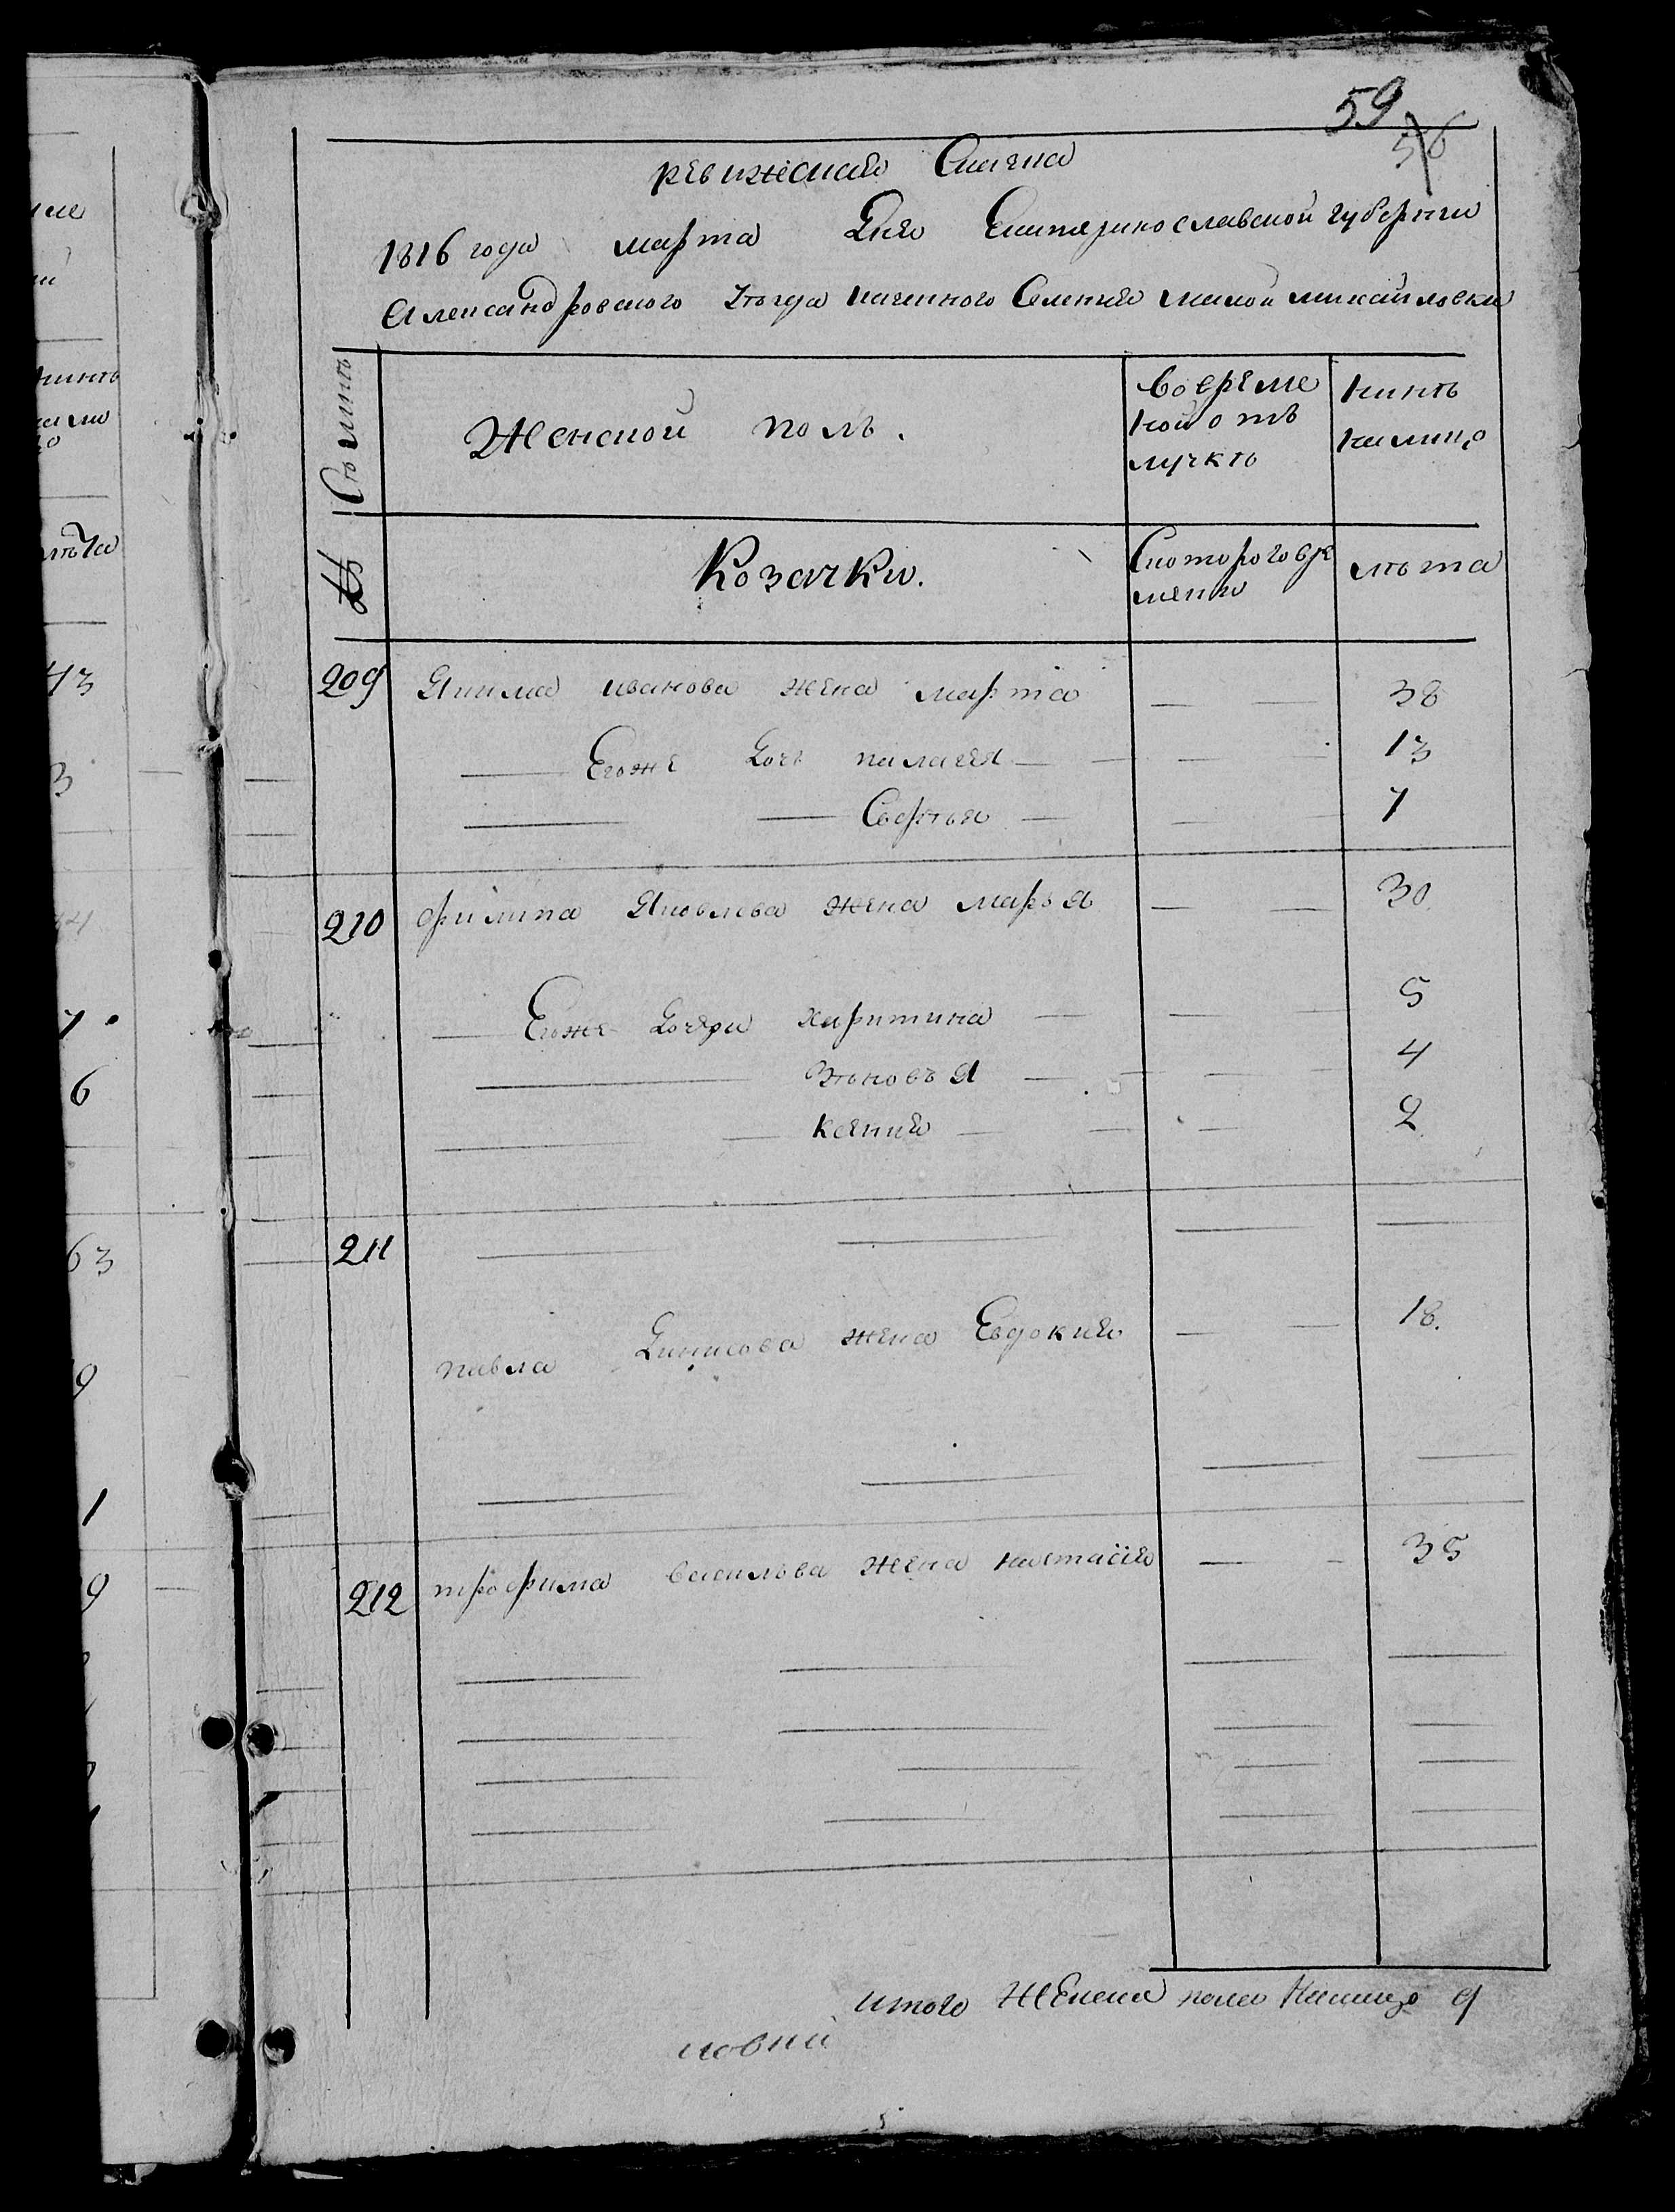 59
56
ревижская Скаска
1816 года марта Дня Екатеринославской губернии
Александровского уезда казенного Селения малой михайловки
Семьи
Женской полъ.
Вовреме
нной отъ
лучкъ
нынѣ
налицо
№
Козачки.
Скоторого вре
мени
лѣта
209 Якима иванова жена марта — — 38
— Егоже Дочь палагея — — — 13
— — Софѣя — — 7
210 филипа Яковлева жена марья — — 30
— Егоже Дочери харитина — — — 5
— Зѣновья — — — 4
— — ксения — — — 2
211 — — — —
павла Динисова жена Евдокия — — 18.
— — — —
212 трофима васильва жена настасия — — 35
— — — —
— — — —
— — — —
— — — —
итого Женска пола Налицо 9
43
3
7
6
63
9
1
9